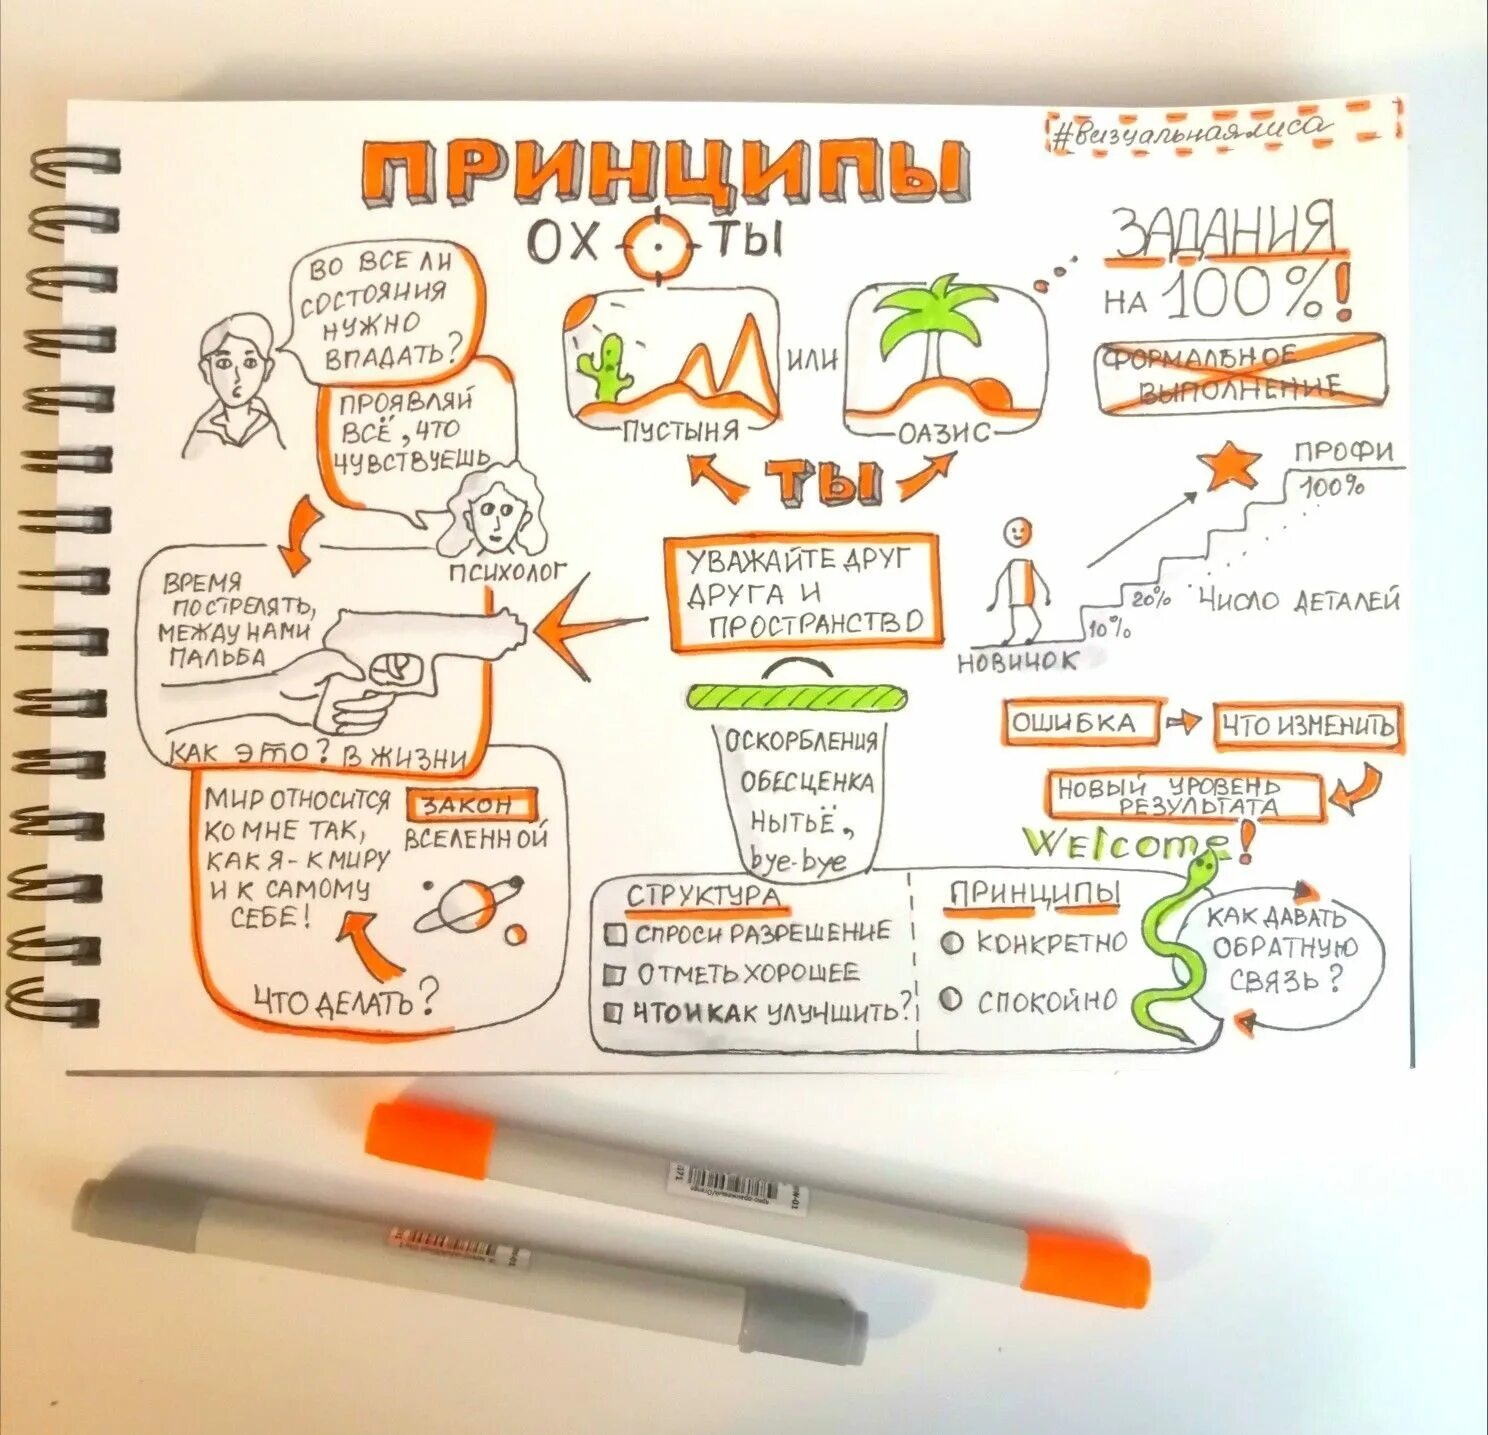 #визуальнаялиса
ПРИНЦИПЫ
ОХ ТЫ
ВО ВСЕ ЛИ
СОСТОЯНИЯ
НУЖНО
ВПАДАТЬ?
ПРОЯВЛЯЙ
ВСЁ, ЧТО
ЧУВСТВУЕШЬ
ПСИХОЛОГ
ПУСТЫНЯ
ИЛИ
ОАЗИС
ТЫ
ЗАДАНИЯ
НА 100%!
ФОРМАЛЬНОЕ
ВЫПОЛНЕНИЕ
ПРОФИ
100%
20%
10%
ЧИСЛО ДЕТАЛЕЙ
НОВИЧОК
УВАЖАЙТЕ ДРУГ
ДРУГА И
ПРОСТРАНСТВО
ВРЕМЯ
ПОСТРЕЛЯТЬ,
МЕЖДУ НАМИ
ПАЛЬБА
КАК ЭТО? В ЖИЗНИ
МИР ОТНОСИТСЯ
КО МНЕ ТАК,
КАК Я - К МИРУ
И К САМОМУ
СЕБЕ!
ЗАКОН
ВСЕЛЕННОЙ
ЧТО ДЕЛАТЬ?
ОСКОРБЛЕНИЯ
ОБЕСЦЕНКА
НЫТЬЁ,
bye-bye
ОШИБКА
ЧТО ИЗМЕНИТЬ
НОВЫЙ УРОВЕНЬ
РЕЗУЛЬТАТА
Welcome!
СТРУКТУРА
СПРОСИ РАЗРЕШЕНИЕ
ОТМЕТЬ ХОРОШЕЕ
ЧТО И КАК УЛУЧШИТЬ?
ПРИНЦИПЫ
КОНКРЕТНО
СПОКОЙНО
КАК ДАВАТЬ
ОБРАТНУЮ
СВЯЗЬ?